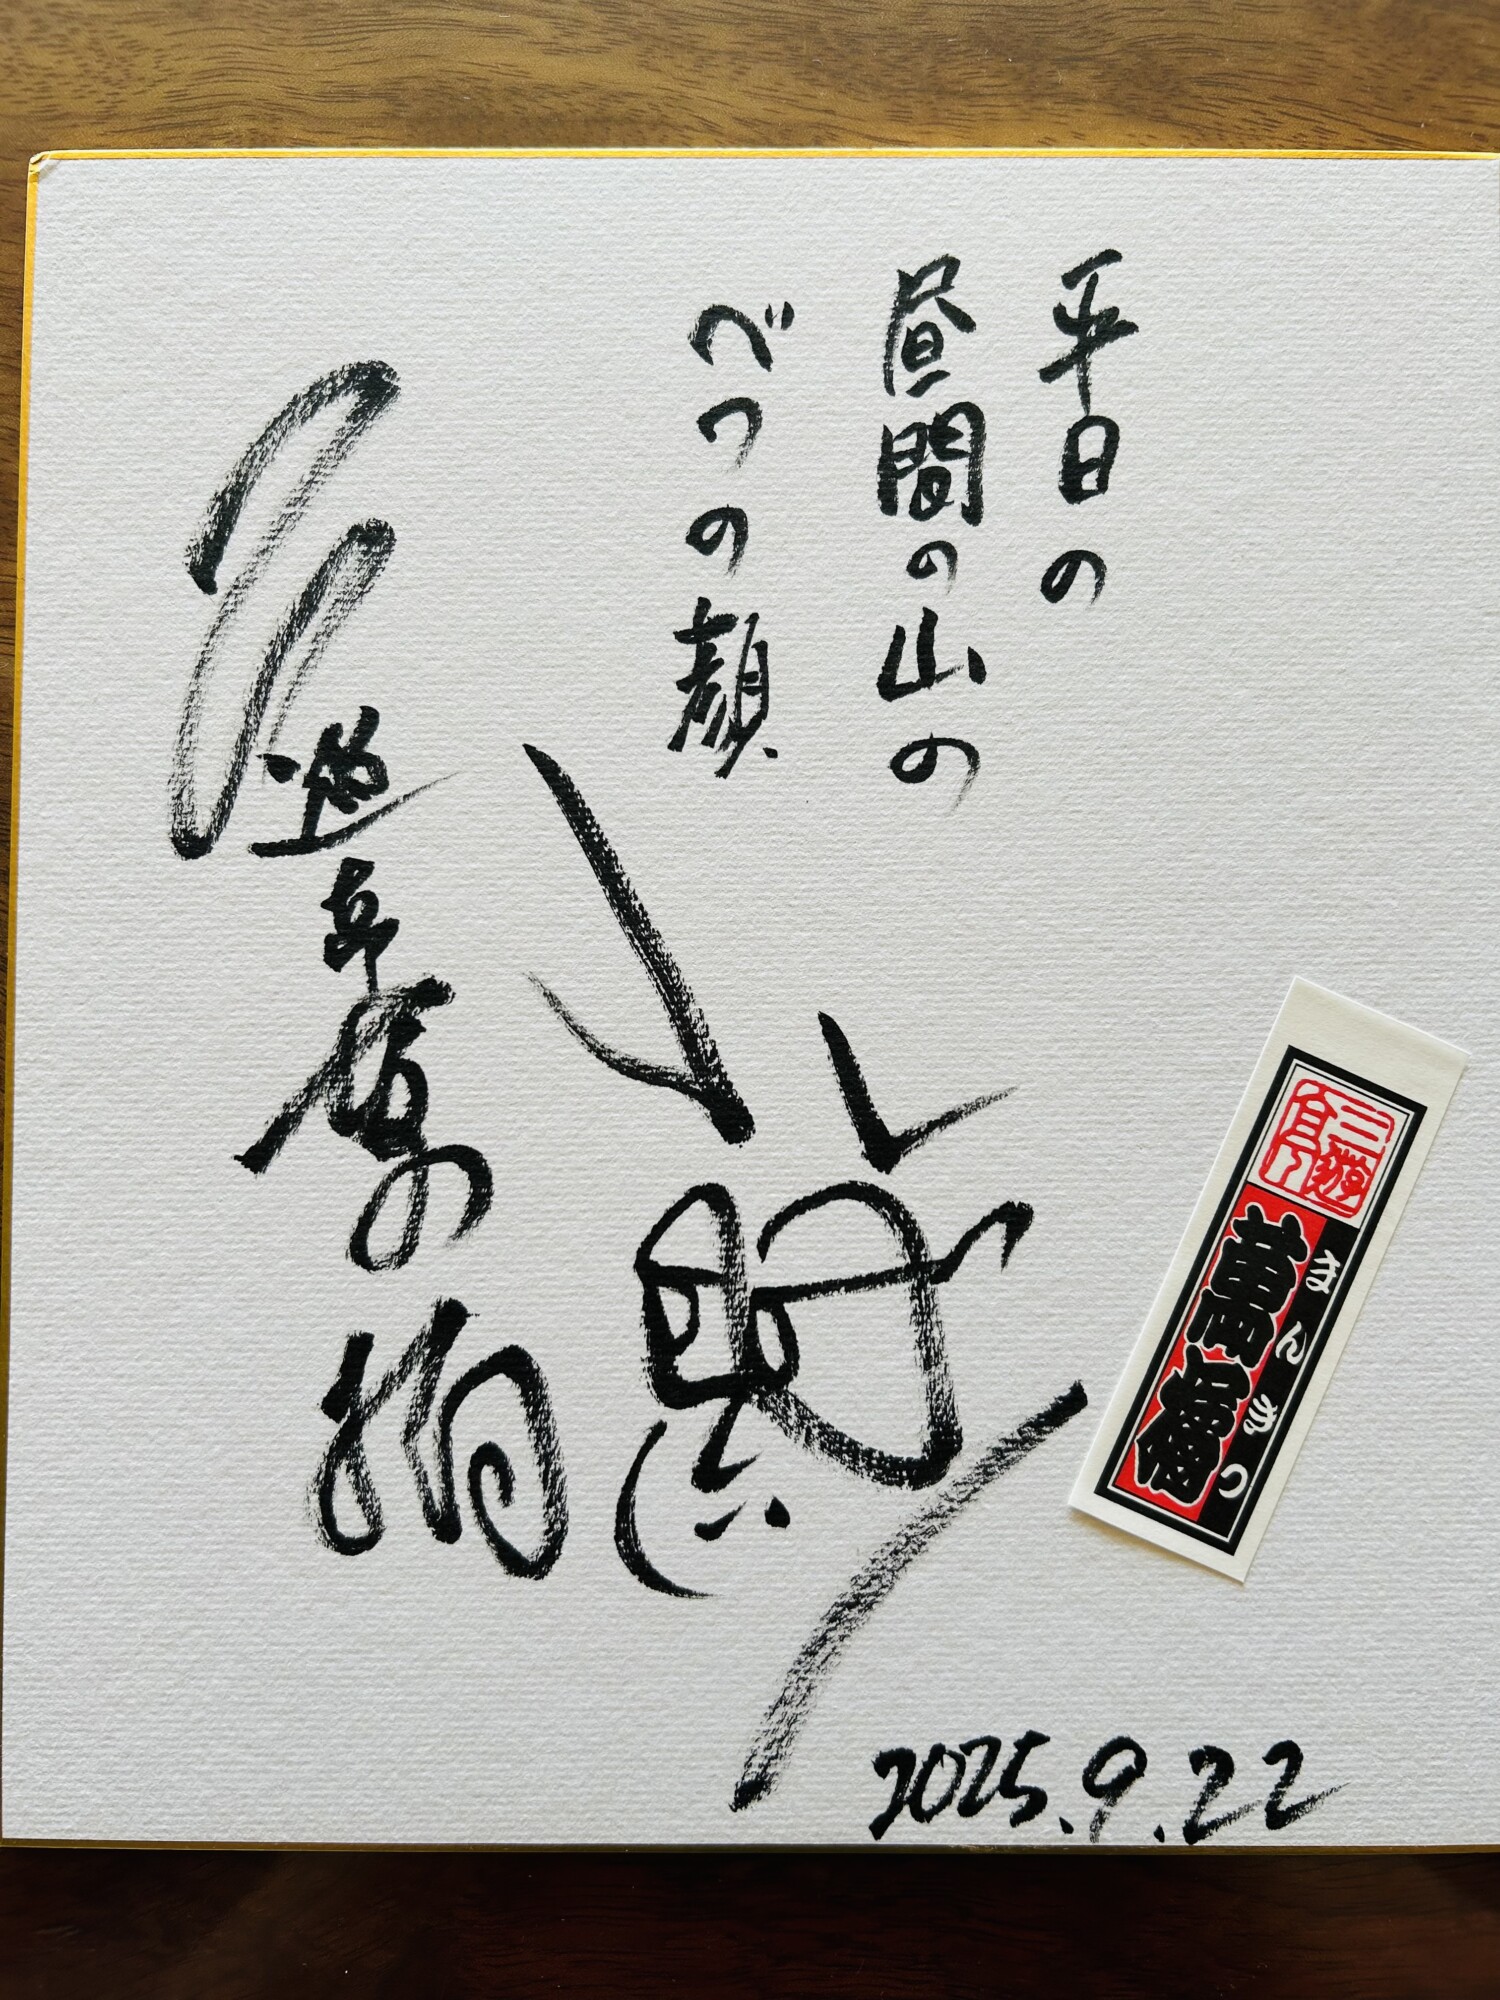 平日の
昼間の山の
べつの顔
三遊亭萬橘
2025.9.22
三遊亭
萬橘
まんきつ